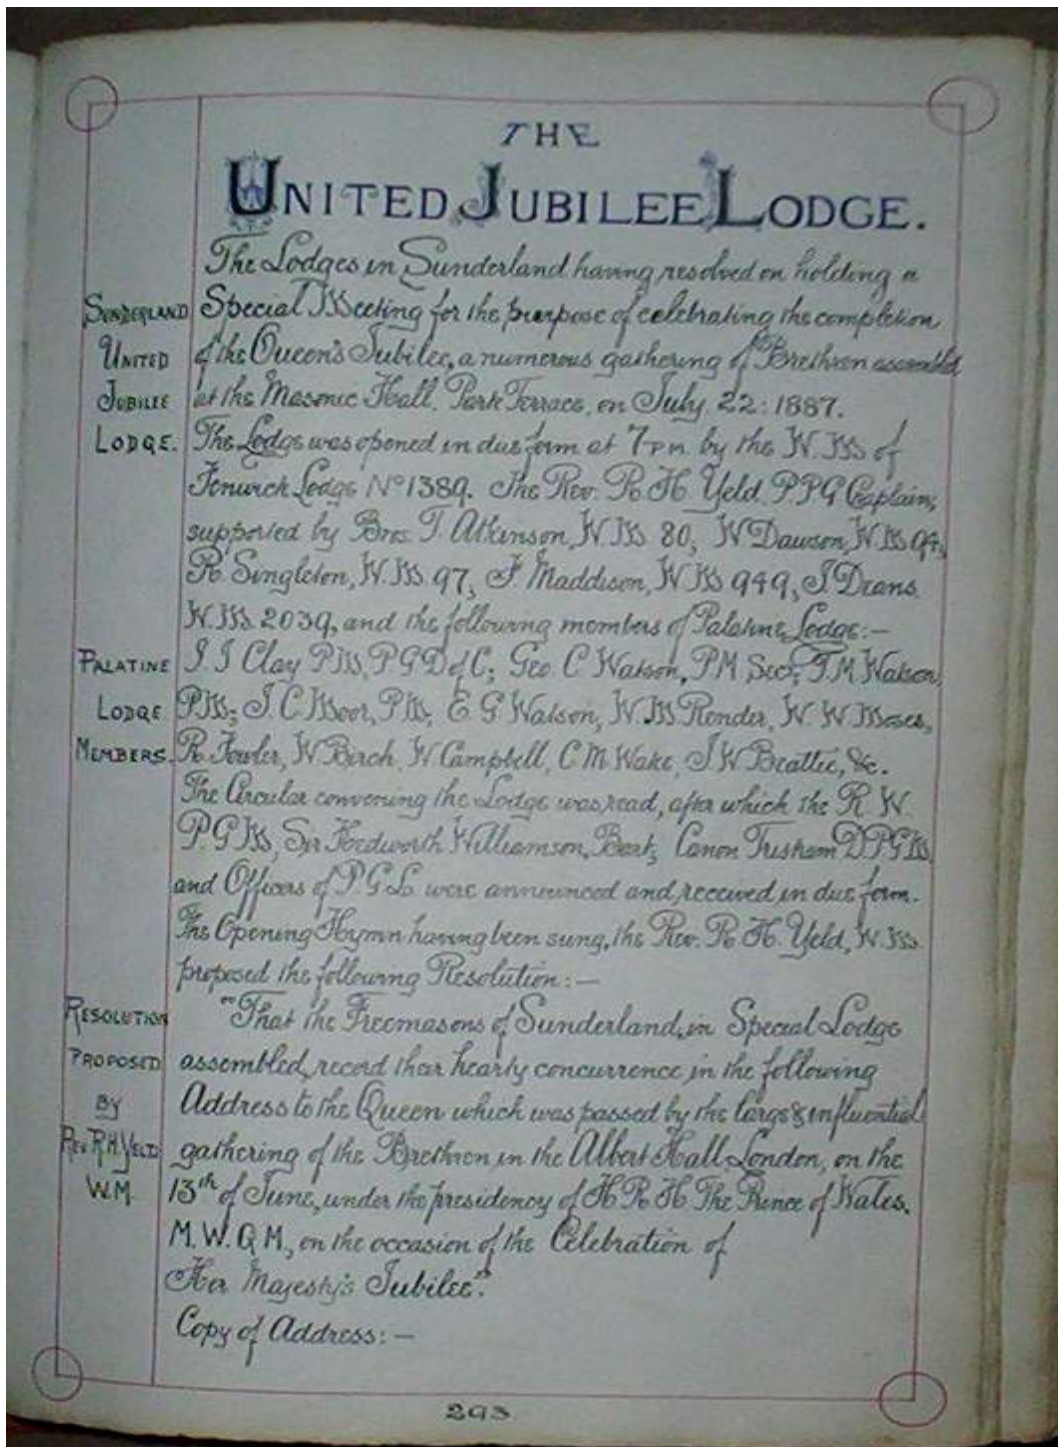 THE
UNITED JUBILEE LODGE.
The Lodges in Sunderland having resolved on holding a
SUNDERLAND Special Meeting for the purpose of celebrating the completion
UNITED of the Queen's Jubilee, a numerous gathering of Brethren assembled
JUBILEE at the Masonic Hall, Park Terrace, on July 22: 1887.
LODGE. The Lodge was opened in due form at 7 P.M. by the W.M. of
Fenwick Lodge No 1389. The Rev. R. H. Yeld. P.P.G Chaplain;
supported by Bros. T. Atkinson, W.M. 80, W Dawson, W.M. 94,
R. Singleton, W.M. 97, F. Maddison, W.M. 949, J. Deans.
W.M. 2039, and the following members of Palatine Lodge:—
PALATINE J. J Clay P.M., P.G.D of C; Geo. C Watson, P.M. Sec; T.M. Watson,
LODGE P.M.; J. C Moor, P.M., E. G Watson, W. M Render, W. W. Moses,
MEMBERS. R. Fowler, W. Birch, W. Campbell, C. M. Wake, J. W Beattie, &c.
The Circular convening the Lodge was read, after which the R. W.
P.G.M., Sir Hedworth Williamson, Bart; Canon Tristram D.P.G.M.
and Officers of P.G.L. were announced and received in due form.
The Opening Hymn having been sung, the Rev. R. H. Yeld, W.M.
proposed the following Resolution:—
RESOLUTION "That the Freemasons of Sunderland, in Special Lodge
PROPOSED assembled, record their hearty concurrence in the following
BY Address to the Queen which was passed by the large & influential
REV R.H. YELD gathering of the Brethren in the Albert Hall London, on the
W.M. 13th of June, under the presidency of H. R. H The Prince of Wales.
M. W. G M., on the occasion of the Celebration of
Her Majesty's Jubilee".
Copy of Address:—
293